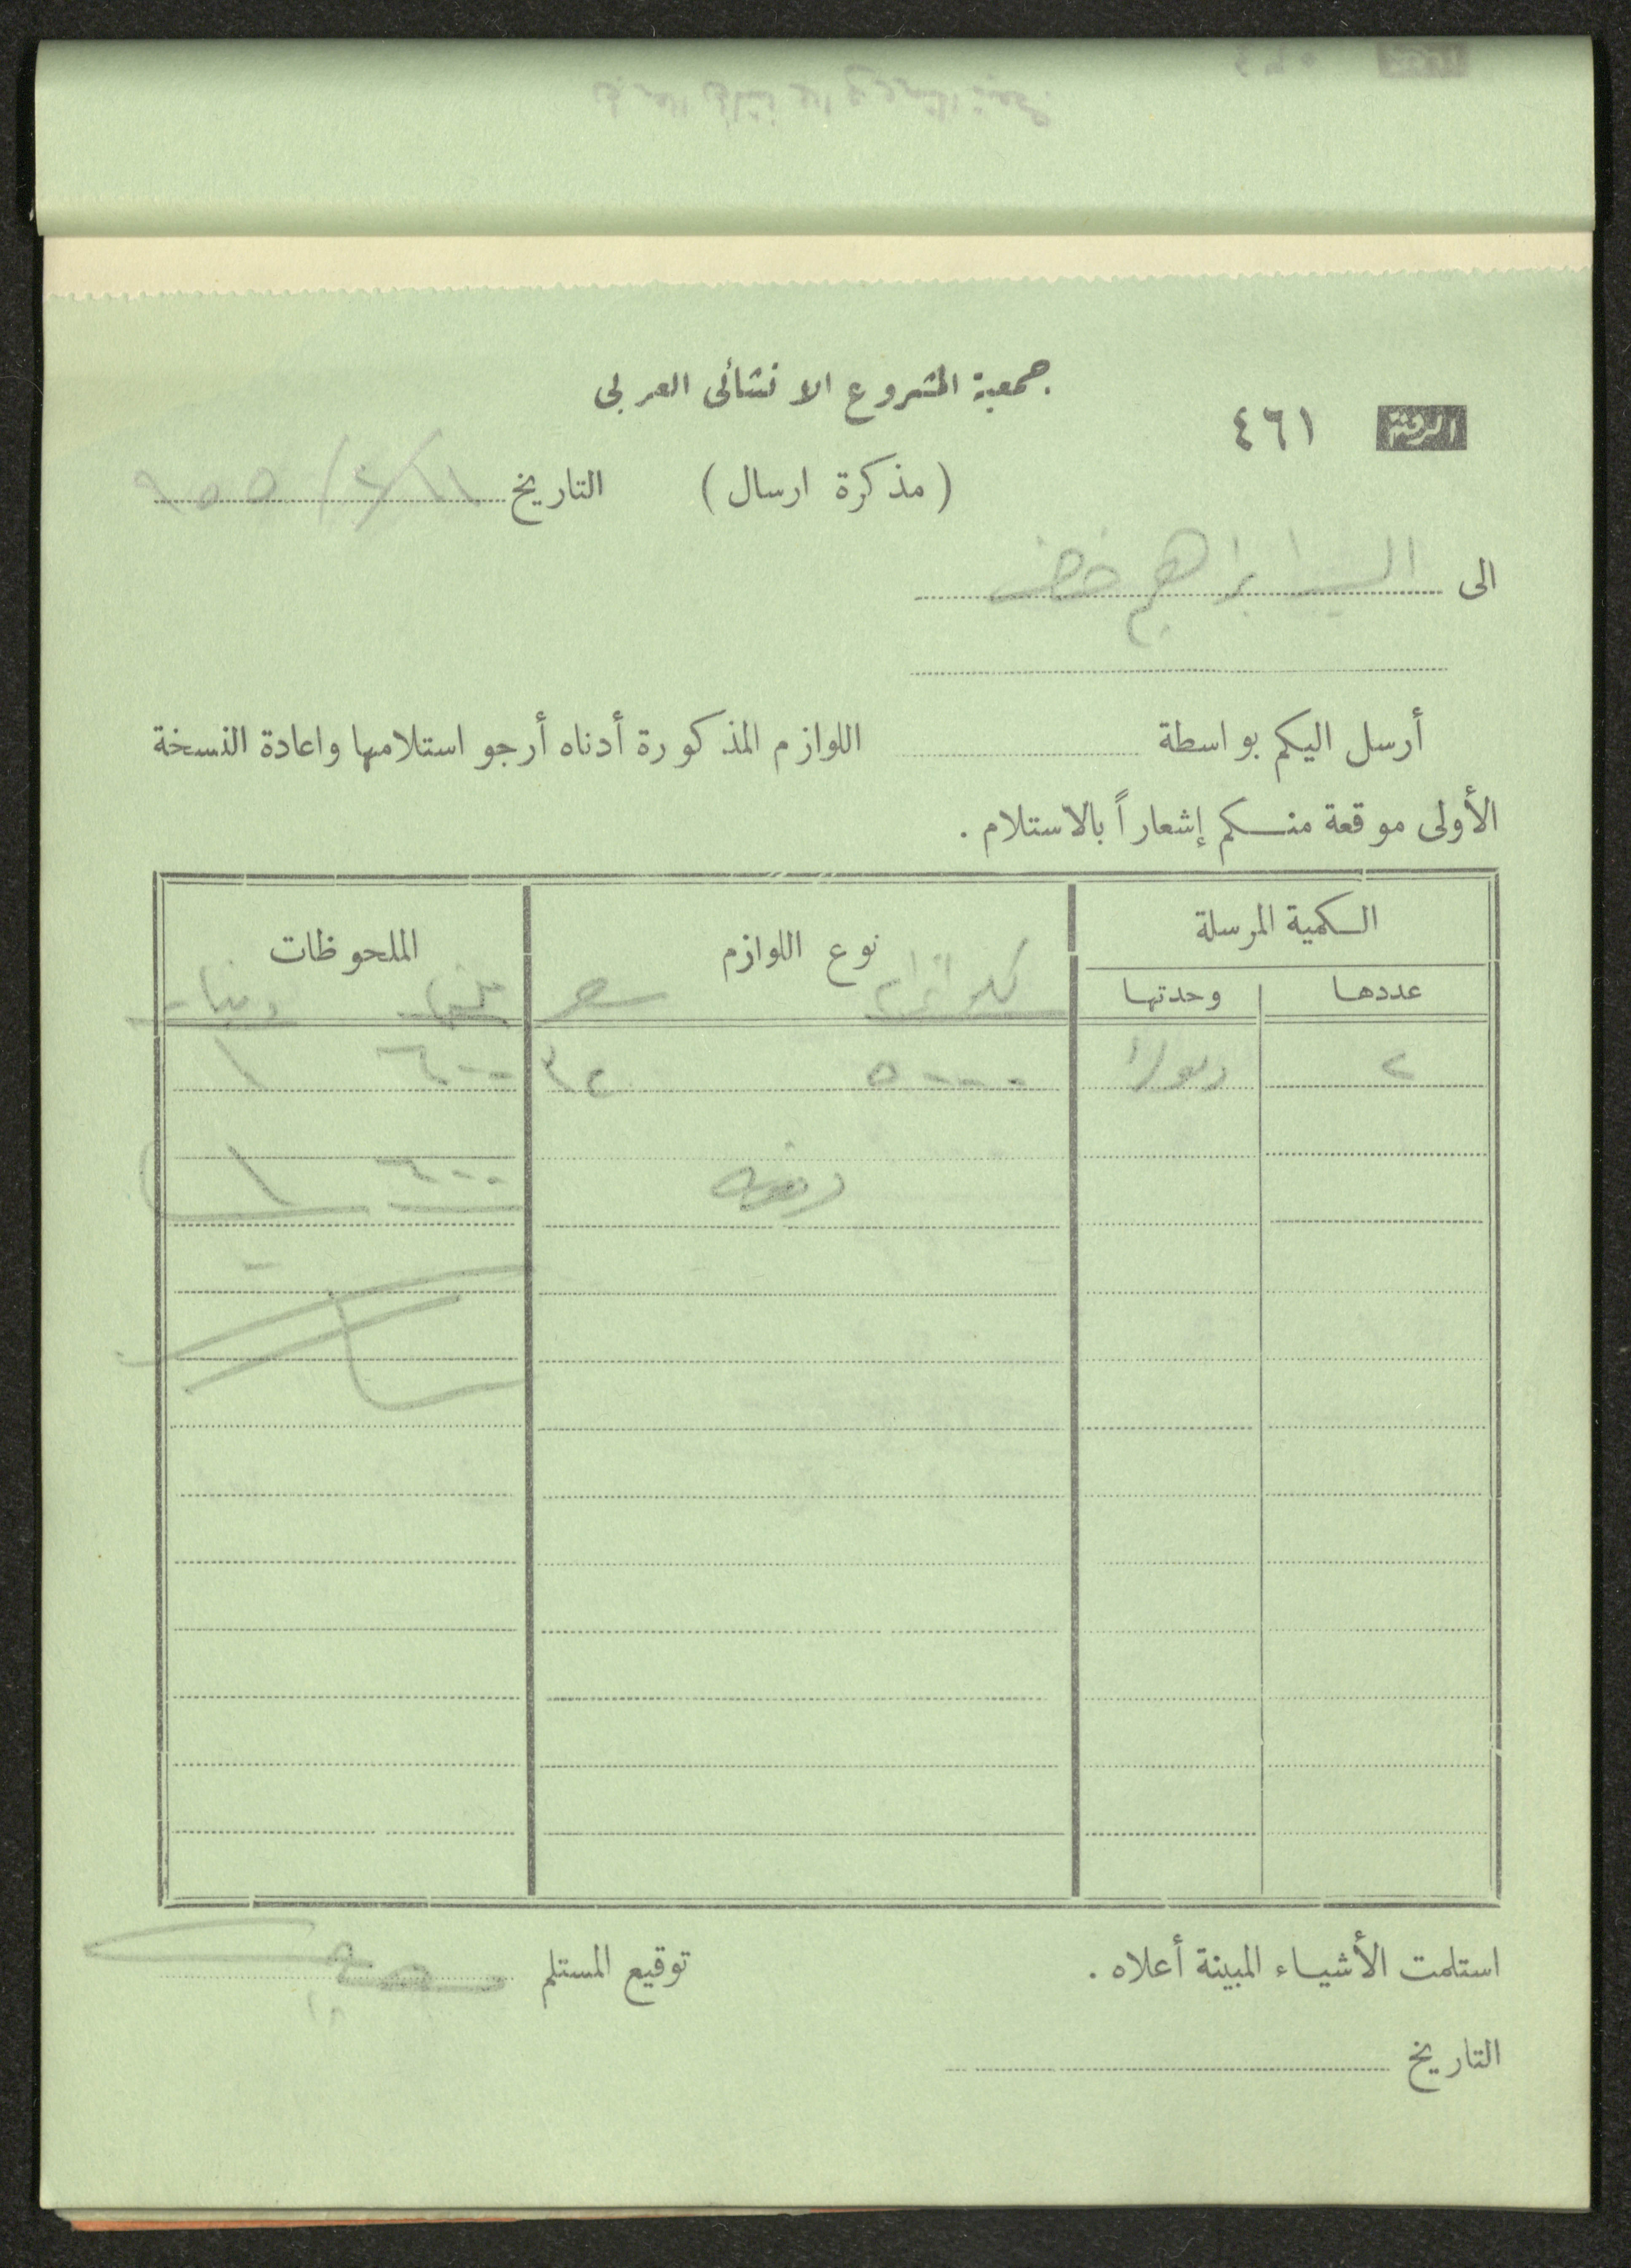 جمعية المشروع الانشائى العربى
الرقم ٤٦١
(مذكرة ارسال) التاريخ ٩٥٥/
الى السيد ابراهيم خضر
أرسل اليكم بواسطة اللوازم المذكورة أدناه أرجو استلامها واعادة النسخة
الأولى موقعة منكم إشعاراً بالاستلام .
الكمية المرسلة نوع اللوازم الملحوظات
عددها وحدتها كيلو غرام سعر دينار
٢ ٥٠٠٠٠ ٣٢ ٦٠٠ ١
دفعه ٦٠٠ ١
استلمت الأشياء المبينة أعلاه . توقيع المستلم
التاريخ